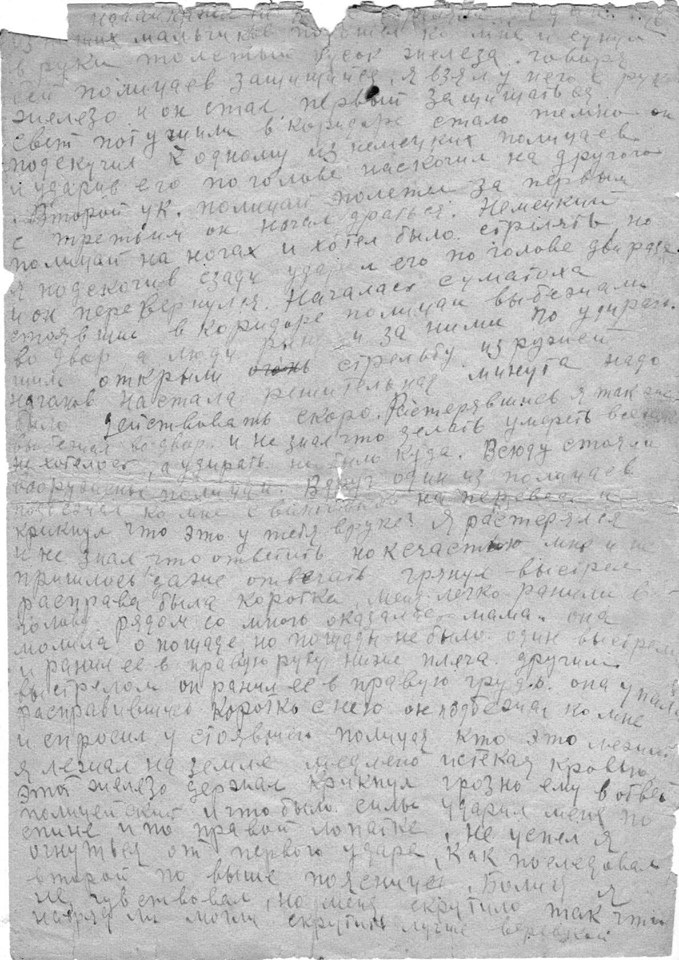 из наших мальчиков подошел ко мне и сунул
в руки толстый кусок железа. говоря
бей полицаев защищайся. Я взял у него с руки
железо и он стал первый защищаться
свет потушили в коридоре стало темно он
подскучил к одному из немецких полицаев
и ударив его по голове наскочил на другого
Второй ук. полицай полетел за первым
с третьим он начал драться. Немецкий
полицай на ногах и хотел было стрелять но
я подскочив сзади ударил его по голове два раза
и он перевернулся. Началась суматоха
стоявшие в коридоре полицаи выбежали
во двор а люди за ними по удирав
шим открыли стрельбу из ружей
наганов настала решительная минута надо
было действовать скоро. Растерявшись я так же
выбежал во двор и не знал что делать умереть
не хотелось, а удирать не было куда. Всюду стояли
вооруженные полицаи. Вдруг один из полицаев
подбежал ко мне с винтовкой на перевес и
крикнул что это у тебя вруке? Я растерялся
и не знал что ответить но к счастью мне и не
пришлось даже отвечать грянул выстрел
расправа была коротка меня легко ранили в
голову рядом со мною оказалась мама. она
молила о пощаде но пощады не было один выстрел
и ранил ее в правую руку ниже плеча. другим
выстрелом он ранил ее в правую грудь. она упала
расправившись коротко с нею он подбежал ко мне
и спросил у стоявшего полицая кто это лежит
я лежал на земле медлено истекая кровью.
этот железо держал крикнул грозно ему в ответ
полицейский и что было силы ударил меня по
спине и по правой лопатке. Не успел я
огнуться от первого удара, как последовал
второй по выше поясницы. Боли я
не чувствовал, но меня скрутило так что
навряд ли могли скрутить лучше веревкой